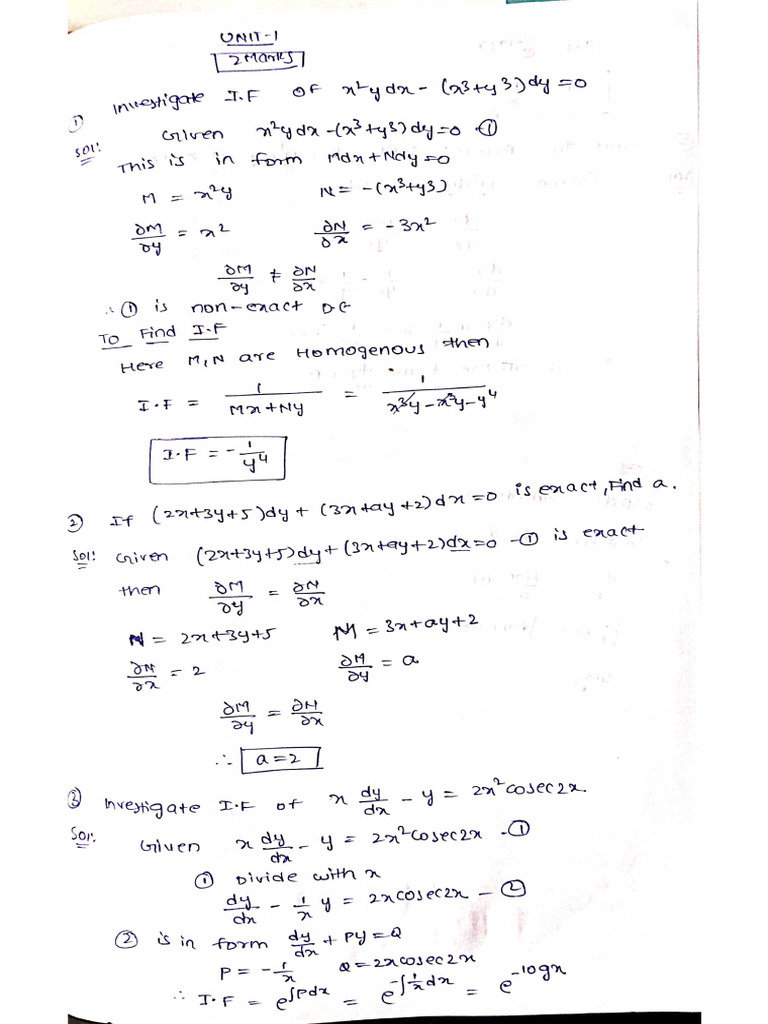 UNIT-1
2Marks
① Investigate I.F OF x²ydx - (x³+y³)dy=0
Sol: Given x²ydx-(x³+y³)dy=0 -①
This is in form Mdx+Ndy=0
M = x²y N = -(x³+y³)
∂M/∂y = x² ∂N/∂x = -3x²
∂M/∂y ≠ ∂N/∂x
∴ ① is non-exact DE
To Find I.F
Here M,N are Homogenous then
I.F = 1/(Mx+Ny) = 1/(x³y-x³y-y⁴)
I.F = -1/y⁴
② If (2x+3y+5)dy+(3x+ay+2)dx=0 is exact, Find a.
Sol: Given (2x+3y+5)dy+(3x+ay+2)dx=0 -① is exact
then ∂M/∂y = ∂N/∂x
N = 2x+3y+5 M = 3x+ay+2
∂N/∂x = 2 ∂M/∂y = a
∂M/∂y = ∂N/∂x
∴ a=2
③ Investigate I.F of x dy/dx - y = 2x²cosec2x.
Sol: Given x dy/dx - y = 2x²cosec2x -①
① Divide with x
dy/dx - 1/x y = 2xcosec2x -②
② is in form dy/dx + Py=Q
P = -1/x Q=2xcosec2x
∴ I.F = e^∫Pdx = e^-∫1/x dx = e^-logx